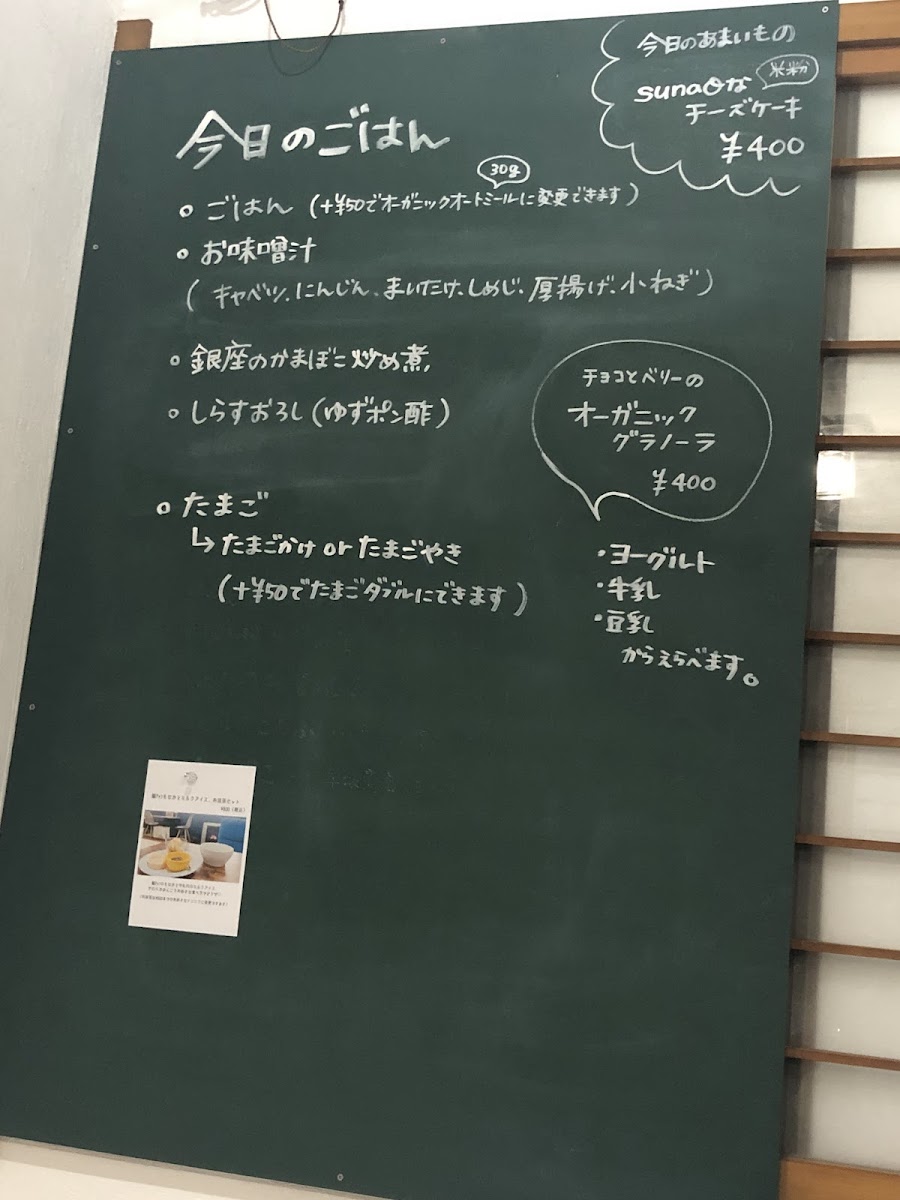 今日のあまいもの
sunaoな 米粉
チーズケーキ
¥400
今日のごはん
30g
。ごはん (+¥50でオーガニックオートミールに変更できます)
。お味噌汁
(キャベツ、にんじん、まいたけ、しめじ、厚揚げ、小ねぎ)
。銀座のかまぼこ炒め煮
。しらすおろし(ゆずポン酢)
。たまご
↳たまごかけ or たまごやき
(+¥50でたまごダブルにできます)
チョコとベリーの
オーガニック
グラノーラ
¥400
・ヨーグルト
・牛乳
・豆乳
からえらべます。